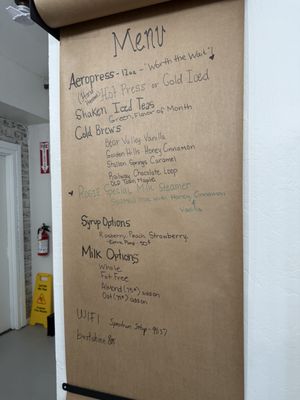 Menu
Aeropress - 12oz - "Worth the Wait"
(Hand Pressed) Hot Press or Cold Iced
Shaken Iced Teas
Green, Flavor of Month
Cold Brews
Bear Valley Vanilla
Golden Hills Honey Cinnamon
Stallion Springs Caramel
Railway Chocolate Loop
Old Town Maple
Special Milk Steamer
Steamed Milk with Honey, Cinnamon
& Vanilla
Syrup Options
Raspberry, Peach, Strawberry
Milk Options
Whole
Fat Free
Almond (75¢) add on
Oat (75¢) add on
WIFI